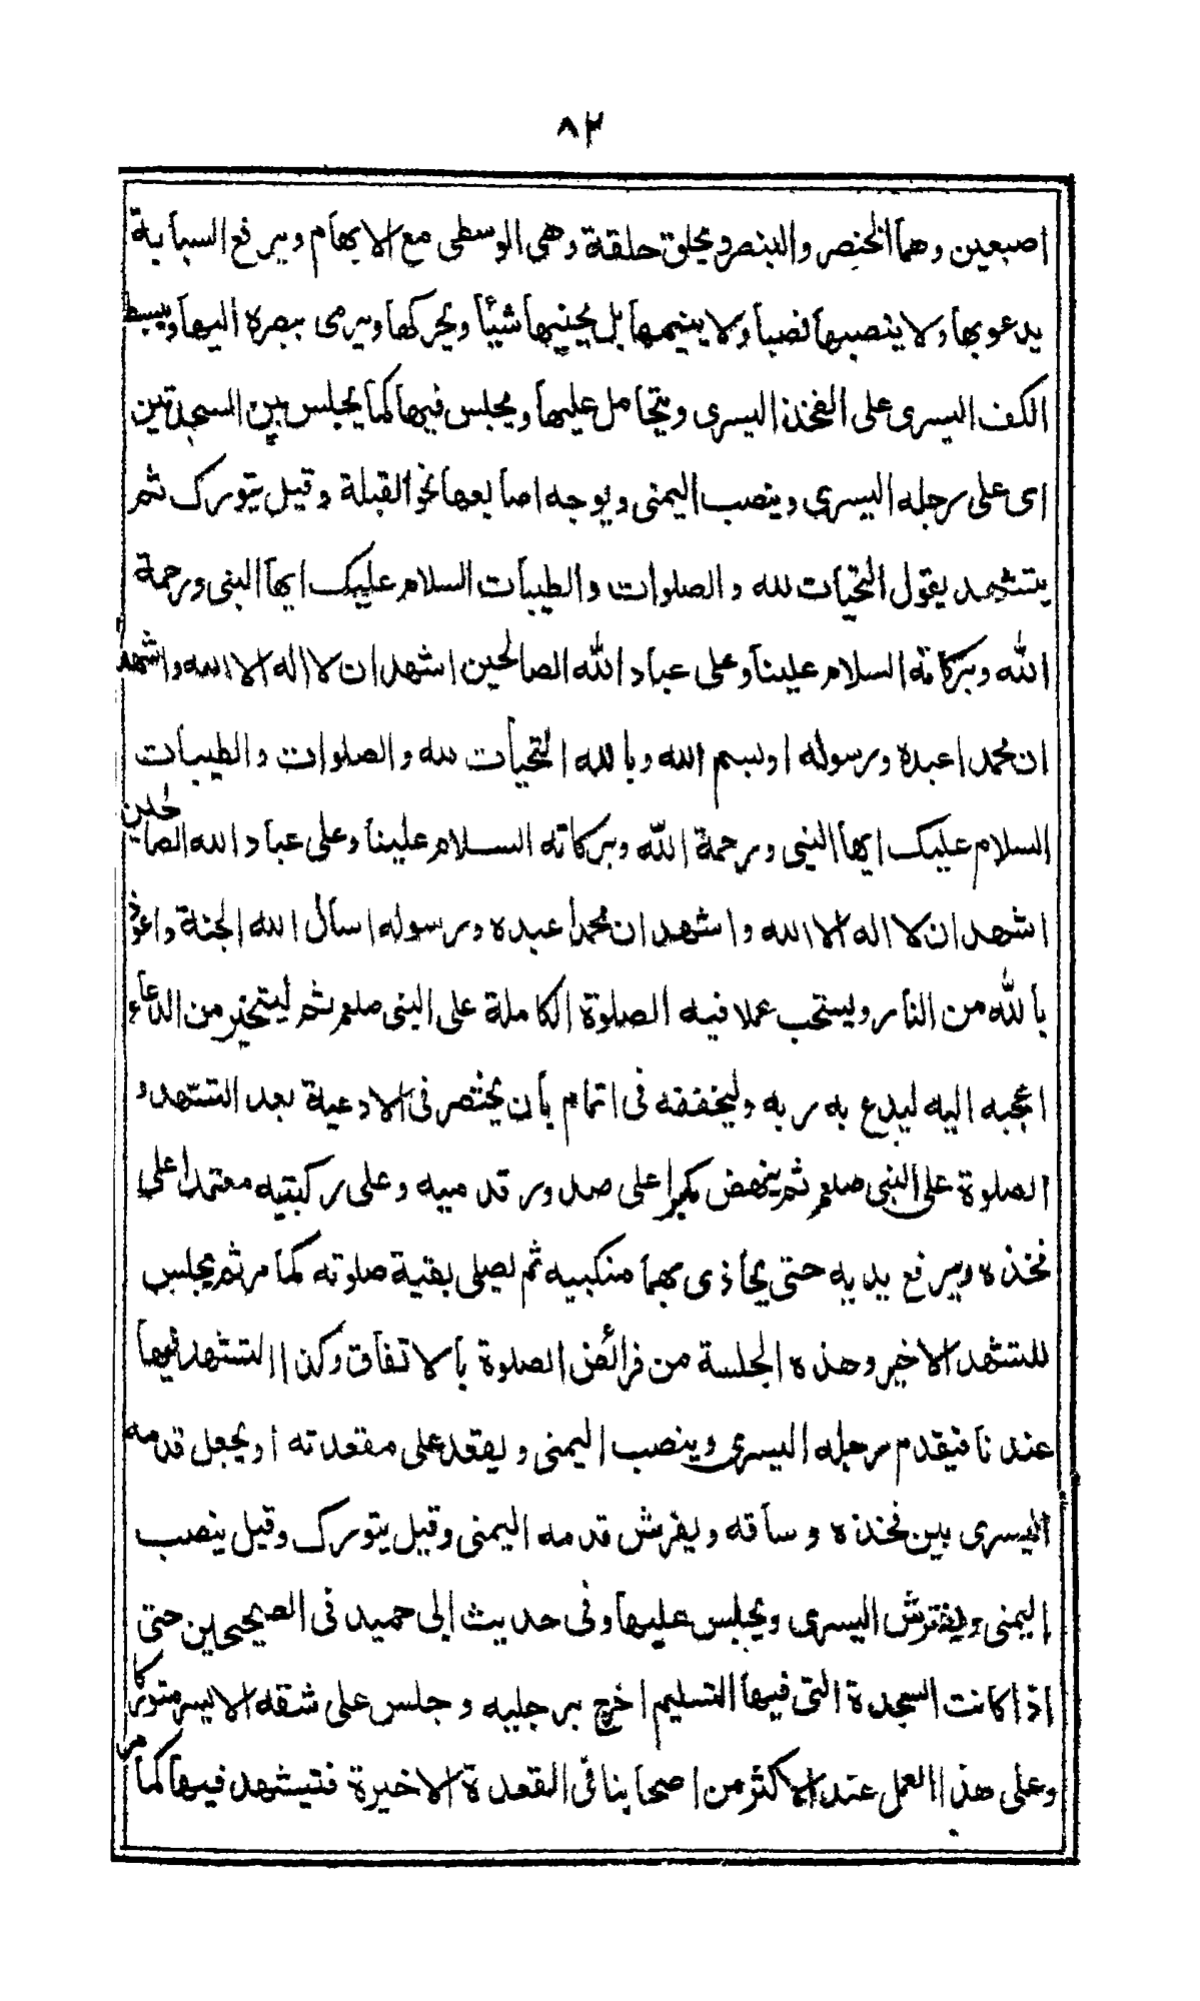 ٨٢
اصبعين وهما الخنصر والبنصر ويحلق حلقة وهي الوسطى مع الابهام ويرفع السبابة
يدعو بها ولا ينصبها نصبا ولا ينيمها بل يحنيها شيئا ويحركها ويرمى ببصره اليها ويبسط
الكف اليسرى على الفخذ اليسرى ويتحامل عليها ويجلس فيها كما يجلس بين السجدتين
اى على رجله اليسرى وينصب اليمنى ويوجه اصابعها نحو القبلة وقيل يتورك ثم
يتشهد يقول التحيات لله والصلوات والطيبات السلام عليك ايها النبى ورحمة
الله وبركاته السلام علينا وعلى عباد الله الصالحين اشهد ان لا اله الا الله واشهد
ان محمدا عبده ورسوله او بسم الله وبالله التحيات لله والصلوات والطيبات
السلام عليك ايها النبى ورحمة الله وبركاته السلام علينا وعلى عباد الله الصالحين
اشهد ان لا اله الا الله واشهد ان محمدا عبده ورسوله اسأل الله الجنة واعوذ
بالله من النار ويستحب عملا فيه الصلوة الكاملة على النبى صلعم ثم ليتخير من الدعاء
اعجبه اليه ليدع به ربه وليخففه فى اتمام بأن يختصر فى الادعية بعد التشهد و
الصلوة على النبى صلعم ثم ينهض مكبرا على صدور قدميه وعلى ركبتيه معتمدا على
فخذه ويرفع يديه حتى يحاذى بهما منكبيه ثم يصلى بقية صلوته كما مر ثم يجلس
للتشهد الاخير وهذه الجلسة من فرائض الصلوة بالاتفاق وكذا التشهد فيها
عندنا فيقدم رجله اليسرى وينصب اليمنى ويقعد على مقعدته او يجعل قدمه
اليسرى بين فخذه وساقه ويفرش قدمه اليمنى وقيل يتورك وقيل ينصب
اليمنى ويفترش اليسرى ويجلس عليها وفى حديث ابى حميد فى الصحيحين حتى
اذا كانت السجدة التى فيها التسليم اخرج برجليه وجلس على شقه الايسر متوركا
وعلى هذا العمل عند الاكثر من اصحابنا فى القعدة الاخيرة فتيشهد فيها كما مر